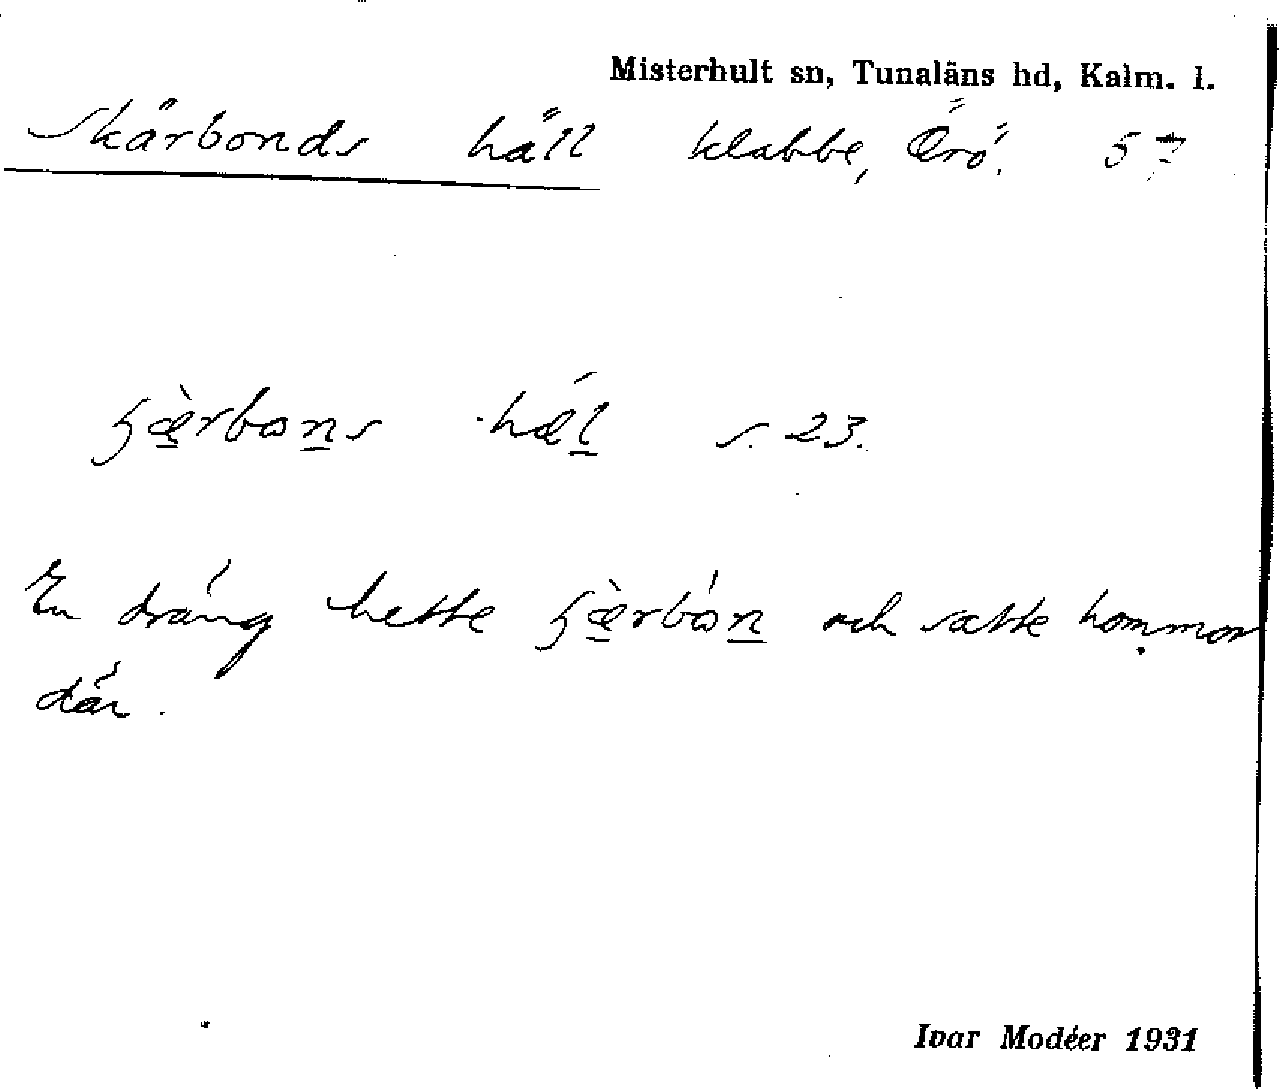 Misterhult sn, Tunaläns hd, Kalm. l.
Skärbonds häll klabbe, Örö. 57
s. 23.
En dräng hette och satte hommor
där.
Ivar Modéer 1931